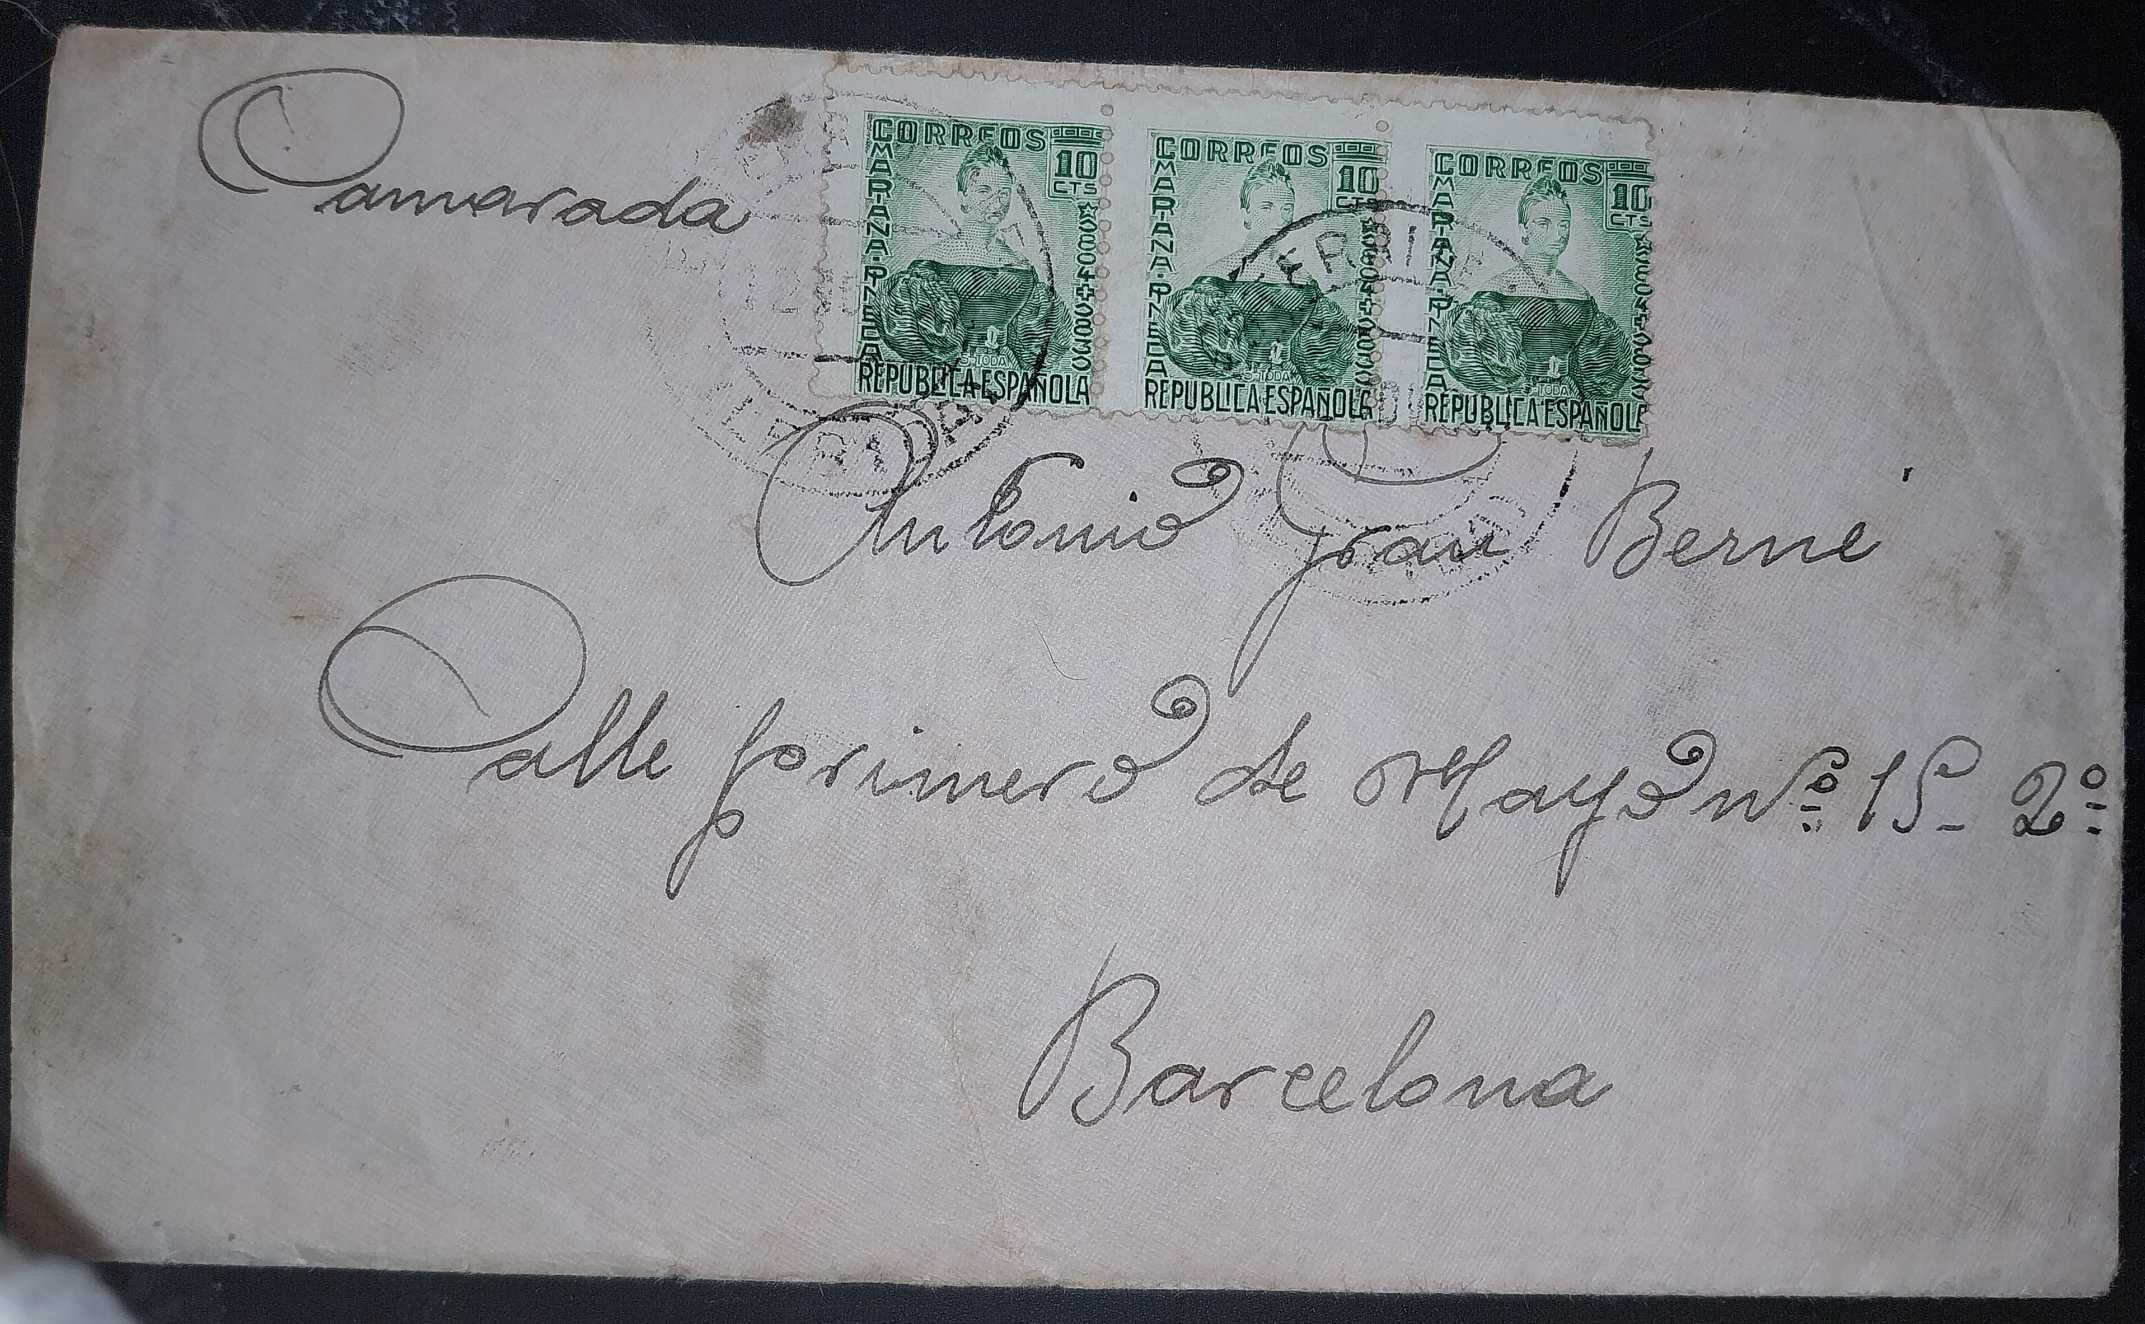 Camarada
CORREOS
10
CTS
MARIANA·PINEDA
S-TODA
REPUBLICA ESPAÑOLA
CORREOS
10
CTS
MARIANA·PINEDA
S-TODA
REPUBLICA ESPAÑOLA
CORREOS
10
CTS
MARIANA·PINEDA
S-TODA
REPUBLICA ESPAÑOLA
Antonio Grau Berné
Calle primero de Mayo nº 15- 2º
Barcelona